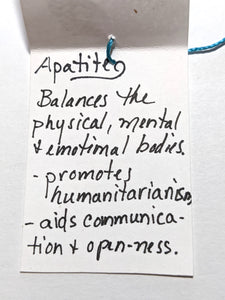 Apatite
Balances the
physical, mental
& emotional bodies.
- promotes
humanitarianism
- aids communica-
tion & open-ness.